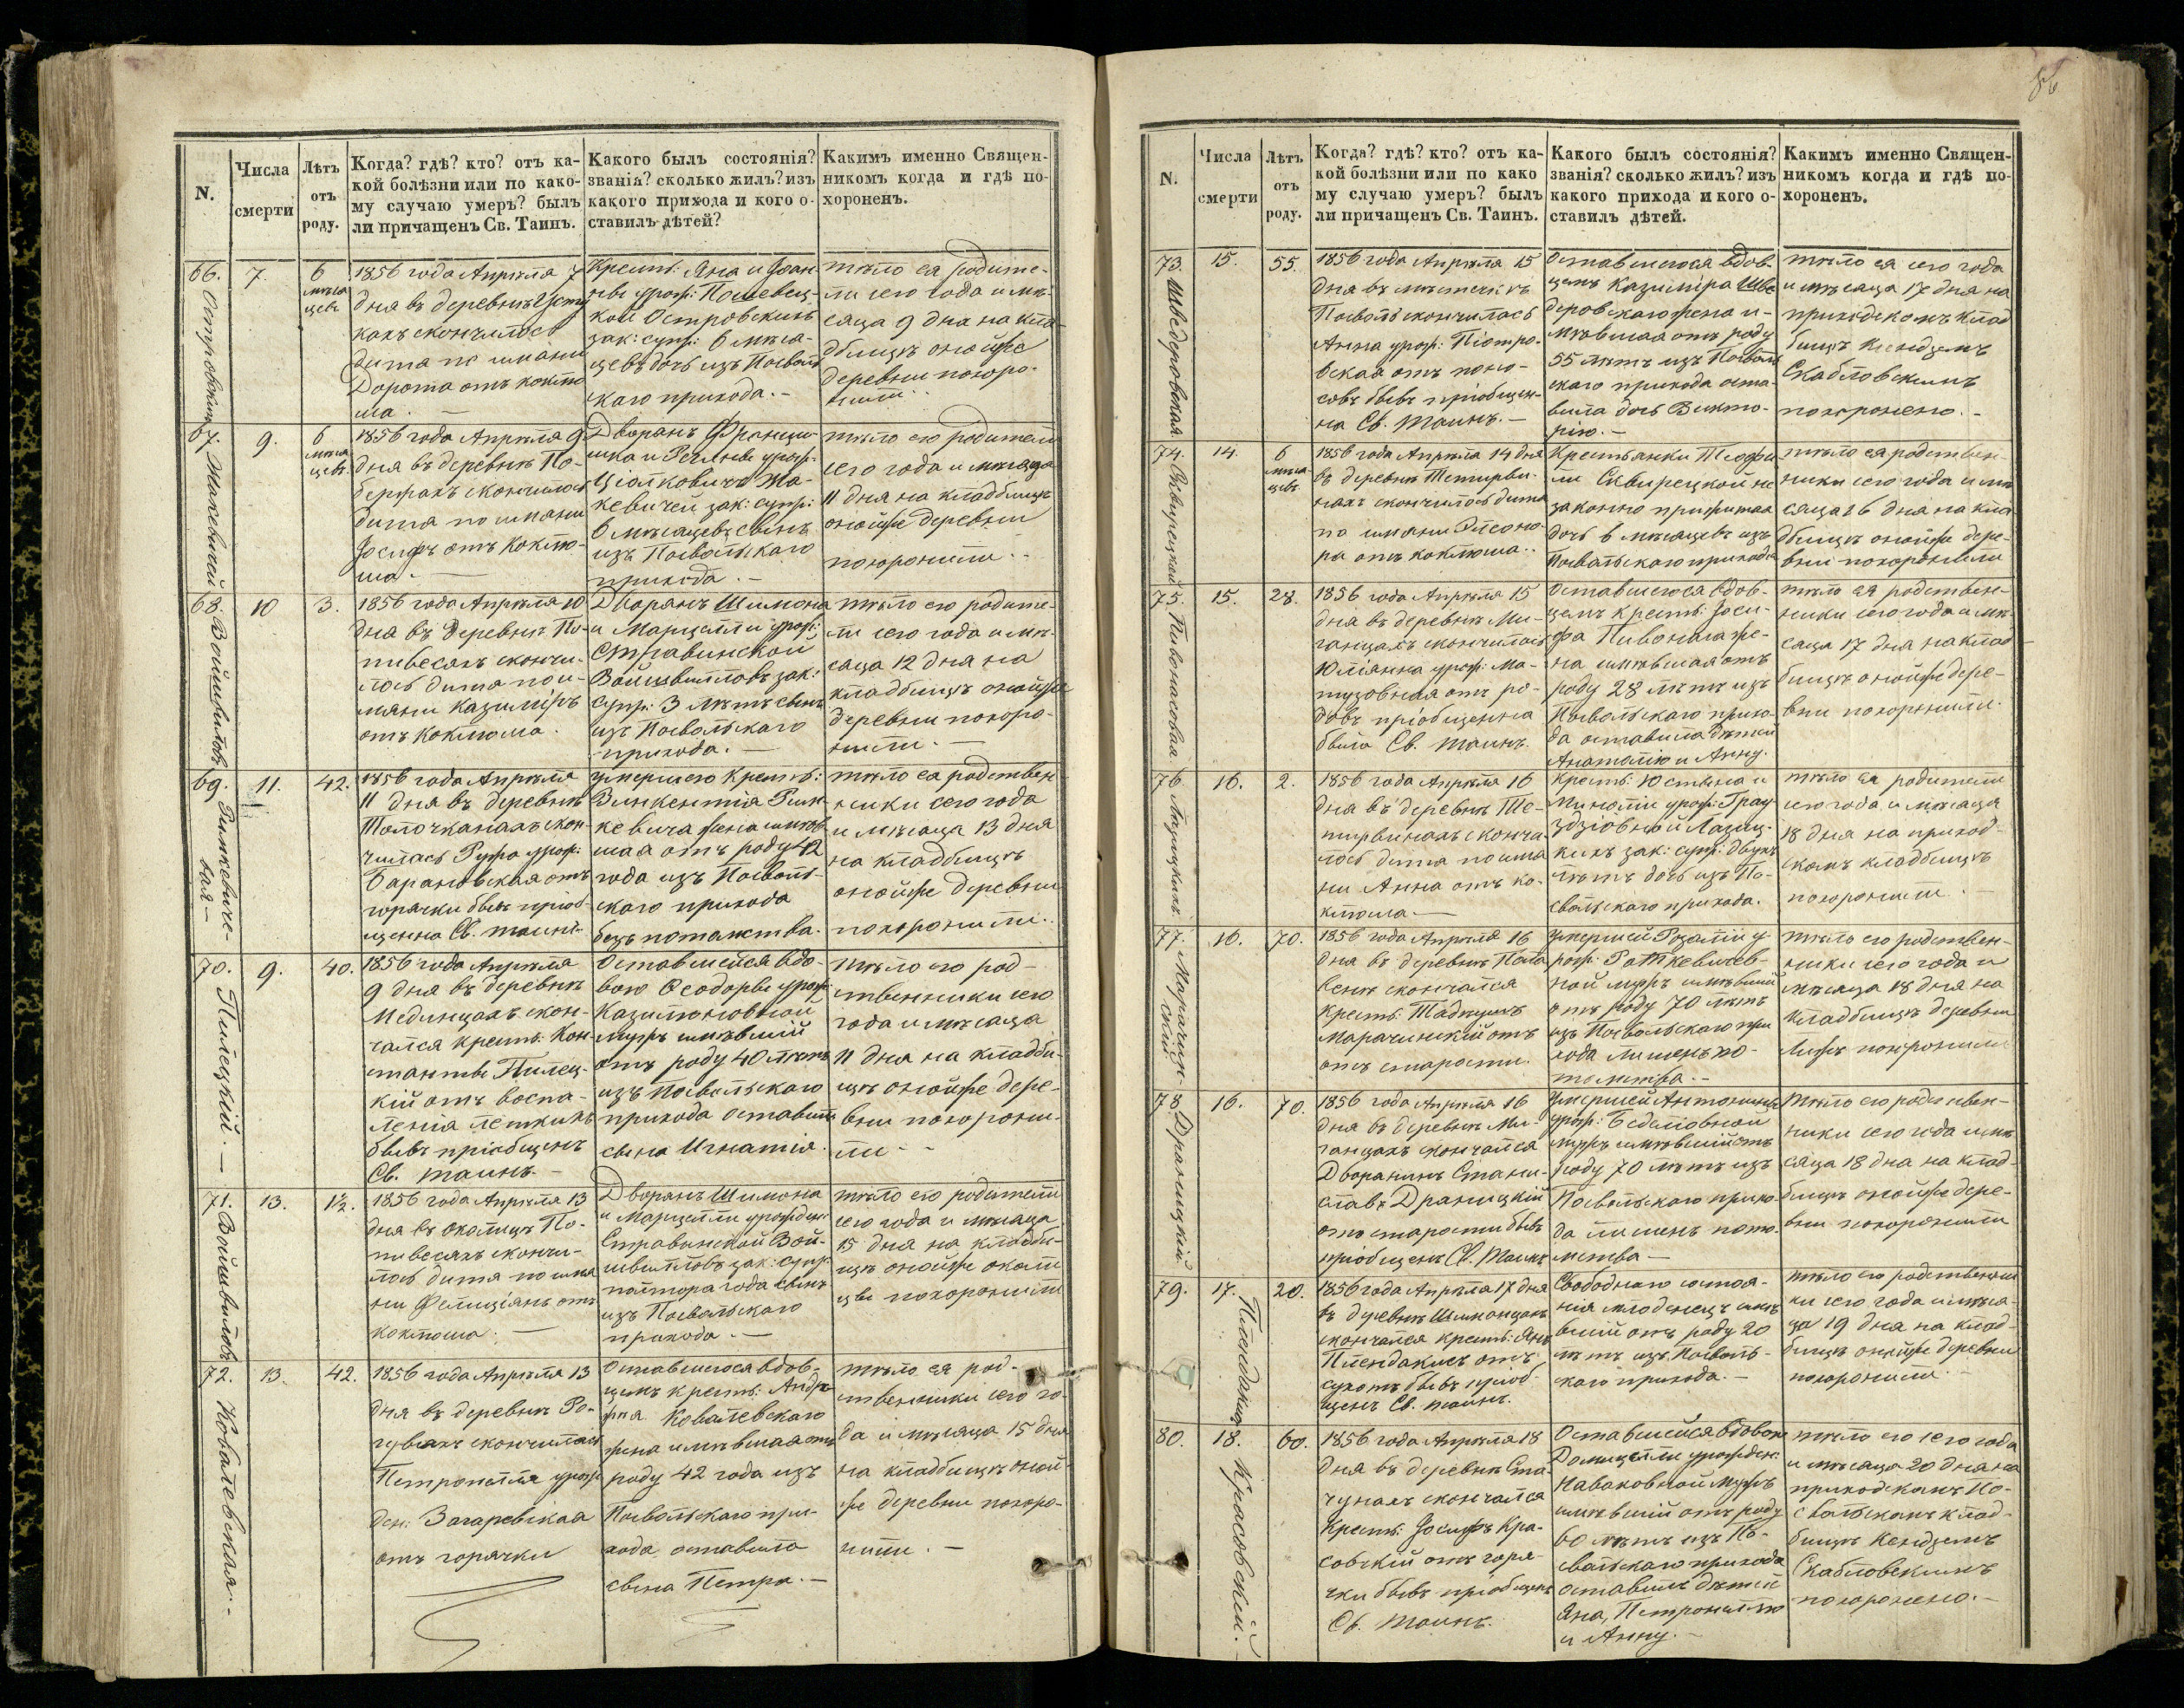 86
N.
Числа смерти
Лѣтъ отъ роду.
Когда? гдѣ? кто? отъ ка-
кой болѣзни или по како-
му случаю умеръ? былъ
ли причащенъ Св. Таинъ.
Какого былъ состоянія?
званія? сколько жилъ? изъ
какого прихода и кого о-
ставилъ дѣтей?
Какимъ именно Священ-
никомъ когда и гдѣ по-
хороненъ.
66.
7.
6
мѣся
цевъ
1856 года Апрѣля 7
дня въ деревнѣ
кахъ скончилось
дитя по имяни
Дорота отъ коклю
ша. —
Крест: Яна и Іоан
ны урож:
кой Островскихъ
зак: супр: 6 мѣся-
цевъ дочь изъ Посволь
скаго прихода. —
тѣло ея родите-
ли сего года и мѣ-
сяца 9 дня на кла
дбищѣ онойже
деревни похоро-
нили.
67.
Макевичей
9.
6
мѣся
цевъ
1856 года Апрѣля 9
дня въ деревнѣ По-
бержахъ скончилось
дитя по имяни
Іосифъ отъ коклю-
ша. —
Дворянъ Франци-
шка и Регины урож:
Ціолковичъ Ма-
кевичей зак: супр:
6 мѣсяцевъ сынъ
изъ Посвольскаго
прихода. —
тѣло его родители
сего года и мѣсяца
11 дня на кладбищѣ
онойже деревни
похоронили. —
68.
Войшвиловъ
10
3.
1856 года Апрѣля 10
дня въ деревнѣ По-
пивесахъ скончи-
лось дитя по и-
мяни Казиміръ
отъ коклюша.
Дворянъ Шимона
и Марцелли урож:
Стравинской
Войшвилловъ зак:
супр: 3 лѣтъ сынъ
изъ Посвольскаго
прихода. —
тѣло его родите-
ли сего года и мѣ-
сяца 12 дня на
кладбищѣ онойже
деревни похоро-
нили. —
69.
Римкевиче-
вая —
11.
42.
1856 года Апрѣля
11 дня въ деревнѣ
Толочканахъ скон-
чилась Руфа урож:
Барановская отъ
горячки бывъ пріоб
щенна Св. таинъ
Умершего Крест:
Винкентія Рим-
кевича жена имѣв
шая отъ роду 42
года изъ Посволь-
скаго прихода
безъ потомства.
тѣло ея родствен
ники сего года
и мѣсяца 13 дня
на кладбищѣ
онойже деревни
похоронили.
70.
Пилецкій. —
9.
40.
1856 года Апрѣля
9 дня въ деревнѣ
Мединцахъ скон-
чался крест: Кон-
станты Пилец-
кій отъ воспа-
ленія легкихъ
бывъ пріобщенъ
Св. таинъ. —
Оставшейся вдо-
вою Ѳеодоры урож:
Казимоновной
мужъ имѣвшій
отъ роду 40 лѣтъ
изъ Посвольскаго
прихода оставилъ
сына Игнатія.
тѣло его род-
ственники сего
года и мѣсяца
11 дня на кладби-
щѣ онойже дере-
вни похорони-
ли. —
71.
Войшвиловъ
13.
1½.
1856 года Апрѣля 13
дня въ околицѣ По-
пивесахъ скончи-
лось дитя по имя
ни Фелиціянъ отъ
коклюша. —
Дворянъ Шимона
и Марцелли урожден:
Стравинской Вой-
швилловъ зак: супр:
полтора года сынъ
изъ Посвольскаго
прихода. —
тѣло его родители
сего года и мѣсяца
15 дня на кладби-
щѣ онойже околи
цы похоронили
72.
Ковалевская. —
13.
42.
1856 года Апрѣля 13
дня въ деревнѣ Ро-
скончилась
Петронелля урож
ден: Загаревская
отъ горячки
Оставшегося вдов-
цемъ крест: Андр-
Ковалевскаго
жена имѣвшая отъ
роду 42 года изъ
Посвольскаго при-
хода оставила
сына Петра. —
тѣло ея род-
ственники сего го-
да и мѣсяца 15 дня
на кладбищѣ оной-
же деревни похоро-
нили. —
N.
Числа смерти
Лѣтъ отъ роду.
Когда? гдѣ? кто? отъ ка-
кой болѣзни или по како
му случаю умеръ? былъ
ли причащенъ Св. Таинъ.
Какого былъ состоянія?
званія? сколько жилъ? изъ
какого прихода и кого о-
ставилъ дѣтей.
Какимъ именно Священ-
никомъ когда и гдѣ по-
хороненъ.
73.
Шведеровская
15.
55.
1856 года Апрѣля 15
дня въ мѣстечкѣ
Посволь скончилась
Анна урож: Піотро-
вская отъ поно-
совъ бывъ пріобщен-
на Св. Таинъ. —
Оставшегося вдов-
цемъ Казиміра Шве
деровскаго жена и-
мѣвшая отъ роду
55 лѣтъ изъ Посволь
скаго прихода оста-
вила дочь Викто-
рію. —
тѣло ея сего года
и мѣсяца 17 дня на
приходскомъ клад
бищѣ Ксендземъ
Скабловскимъ
похоронено. —
74.
Сквирецкой
14.
6
мѣся-
цевъ.
1856 года Апрѣля 14 дня
въ деревнѣ Тетирви-
нахъ скончилось дитя
по имяни Элеоно-
ра отъ коклюша.
Крестьянки Теофи
ли Сквирецкой не
законно прижитая
дочь 6 мѣсяцевъ изъ
Посвольскаго прихода
тѣло ея родствен-
ники сего года и мѣ
сяца 16 дня на кла-
дбищѣ онойже дере-
вни похоронили
75.
Пивонасовая
15.
28.
1856 года Апрѣля 15
дня въ деревнѣ Ми-
ганцахъ скончилась
Юліянна урож: Ма-
тузовная отъ ро-
довъ пріобщенна
была Св. таинъ.
Оставшегося вдов-
цемъ крест: Іоси-
фа Пивонаса же-
на имѣвшая отъ
роду 28 лѣтъ изъ
Посвольскаго прихо-
да оставила дѣтей
Анатолію и Анну.
тѣло ея родствен-
ники сего года и мѣ-
сяца 17 дня на клад
бищѣ онойже дере-
вни похоронили.
76.
Лазицкихъ
16.
2.
1856 года Апрѣля 16
дня въ деревнѣ Те-
тирвинахъ сконча
лось дитя по имя
ни Анна отъ ко-
клюша —
Крест: Юстына и
урож: Грау
здзіовной Лазиц-
кихъ зак: супр: двухъ
лѣтъ дочь изъ По-
свольскаго прихода.
тѣло ея родители
сего года и мѣсяца
18 дня на приход-
скомъ кладбищѣ
похоронили. —
77.
Марачин-
скій
16.
70.
1856 года Апрѣля 16
дня въ деревнѣ
скончался
крест: Тадеушъ
Марачинскій отъ
отъ старости.
Умершей Розаліи у-
рож: Раткевичев-
ной мужъ имѣвшій
отъ роду 70 лѣтъ
изъ Посвольскаго при
хода лишенъ по-
томства. —
тѣло его родствен-
ники сего года и
мѣсяца 18 дня на
кладбищѣ деревни
похоронили
78.
Драницкій
16.
70.
1856 года Апрѣля 16
дня въ деревнѣ Ми-
ганцахъ скончался
Дворянинъ Стани-
славъ Драницкій
отъ старости бывъ
пріобщенъ Св. Таинъ
Умершей Антонины
урож:
мужъ имѣвшій отъ
роду 70 лѣтъ изъ
Посвольскаго прихо-
да лишенъ пото-
мства —
тѣло его родствен-
ники сего года и мѣ
сяца 18 дня на клад-
бищѣ онойже дере-
вни похоронили
79.
17.
20.
1856 года Апрѣля 17 дня
въ деревнѣ
скончался крест: Янъ
отъ
сухотъ бывъ пріоб-
щенъ Св. таинъ.
Свободнаго состоя-
нія младенецъ имѣ
вшій отъ роду 20
лѣтъ изъ Посволь-
скаго прихода. —
тѣло его родственни
ки сего года и мѣся-
ца 19 дня на клад-
бищѣ онойже деревни
похоронили. —
80.
Красовскій. —
18.
60.
1856 года Апрѣля 18
дня въ деревнѣ Ста-
чунахъ скончался
Крест: Іосифъ Кра-
совскій отъ горя-
чки бывъ пріобщенъ
Св. Таинъ.
Оставшейся вдовою
Домицелли урожден:
Наваковной мужъ
имѣвшій отъ роду
60 лѣтъ изъ По-
свольскаго прихода
оставилъ дѣтей
Яна, Петронеллю
и Анну. —
тѣло его сего года
и мѣсяца 20 дня на
приходскомъ По-
свольскомъ клад-
бищѣ Ксендземъ
Скабловскимъ
похоронено. —